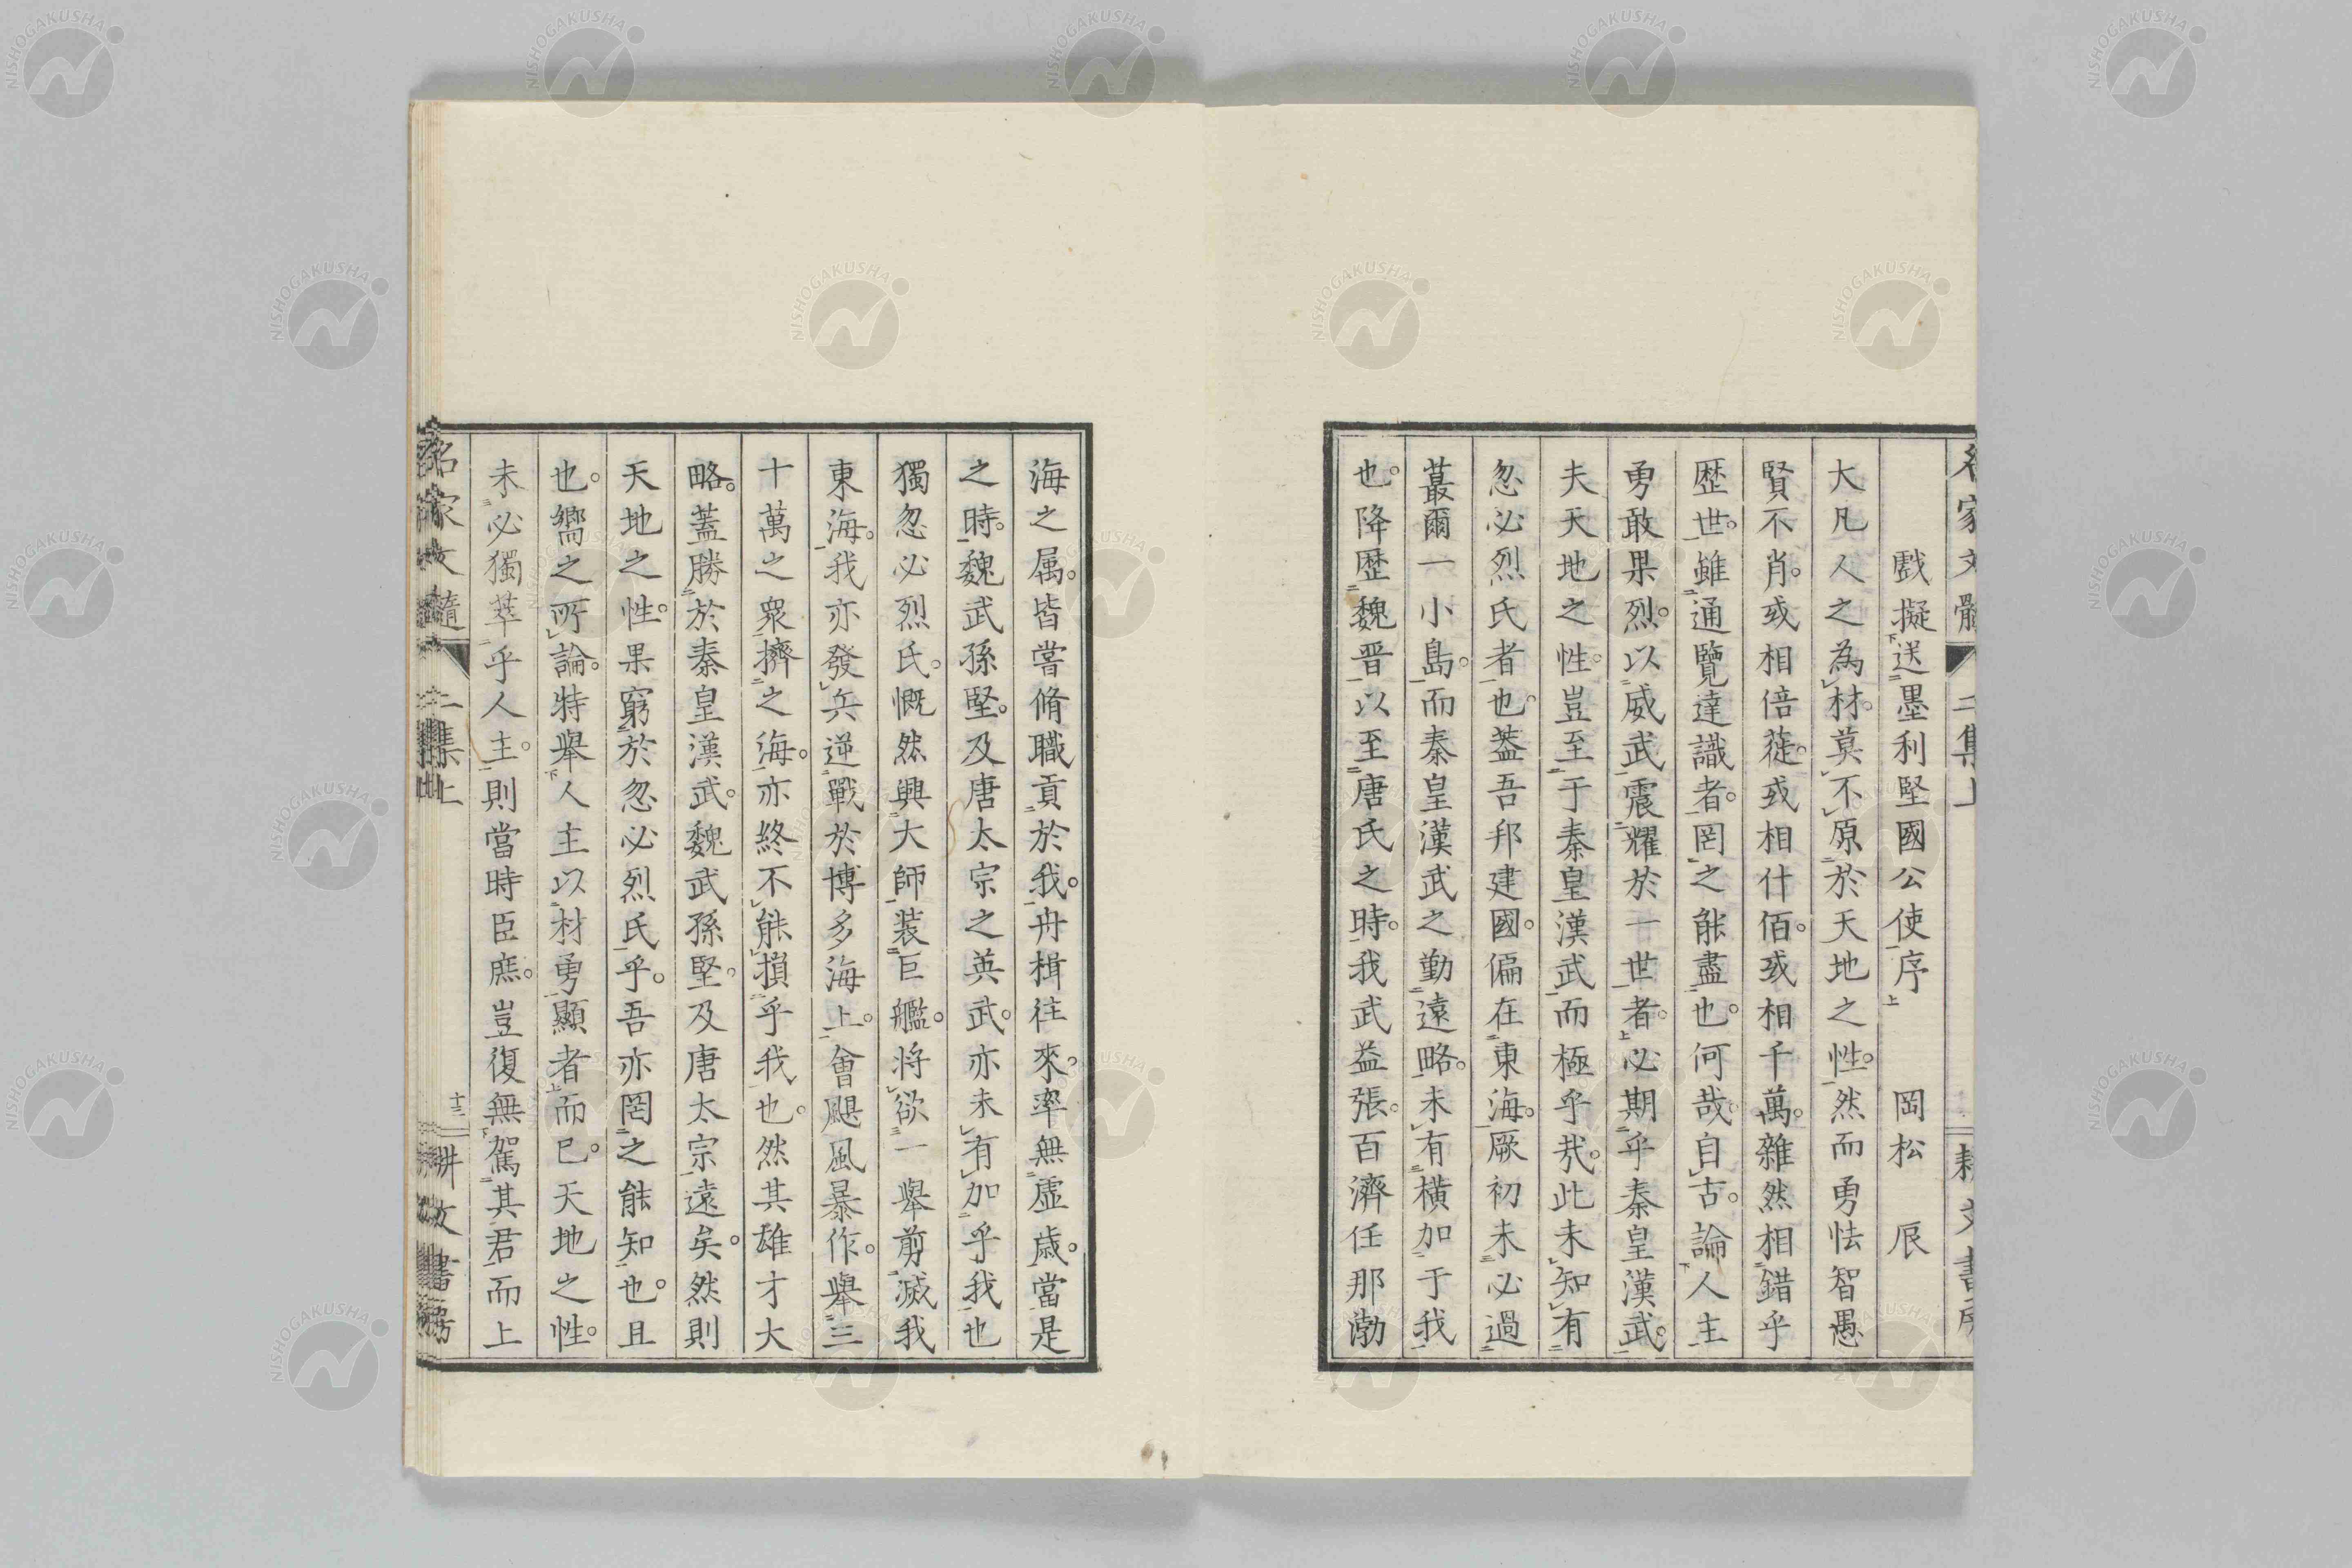 戲擬送墨利堅國公使序　岡松　辰
大凡人之為材。莫不原於天地之性。然而勇怯智愚
賢不肖。或相倍蓰。或相什佰。或相千萬。雜然相錯乎
歴世。雖通覽達識者。罔之能盡也。何哉。自古。論人主
勇敢果烈。以威武震耀於一世者。必期乎秦皇漢武。
夫天地之性。豈至于秦皇漢武而極乎哉。此未知有
忽必烈氏者也。蓋吾邦建國。偏在東海。厥初未必過
蕞爾一小島。而秦皇漢武之勤遠略。未有橫加于我
也。降歴魏晋以至唐氏之時。我武益張。百濟任那渤
海之属。皆嘗脩職貢於我。舟楫往來。率無虛歲。當是
之時。魏武孫堅。及唐太宗之英武。亦未有加乎我也
獨忽必烈氏。慨然興大師装巨艦。将欲一舉剪滅我
東海。我亦發兵逆戰於博多海上。會颶風暴作。舉三
十萬之衆擠之海。亦終不能損乎我也。然其雄才大
略。蓋勝於秦皇漢武。魏武孫堅。及唐太宗遠矣。然則
天地之性。果窮於忽必烈氏乎。吾亦罔之能知也。且
也。嚮之所論。特舉人主以材勇顯者而已。天地之性。
未必獨萃乎人主。則當時臣庶。豈復無駕其君而上
名家文髓　二集上　十三　耕文書房